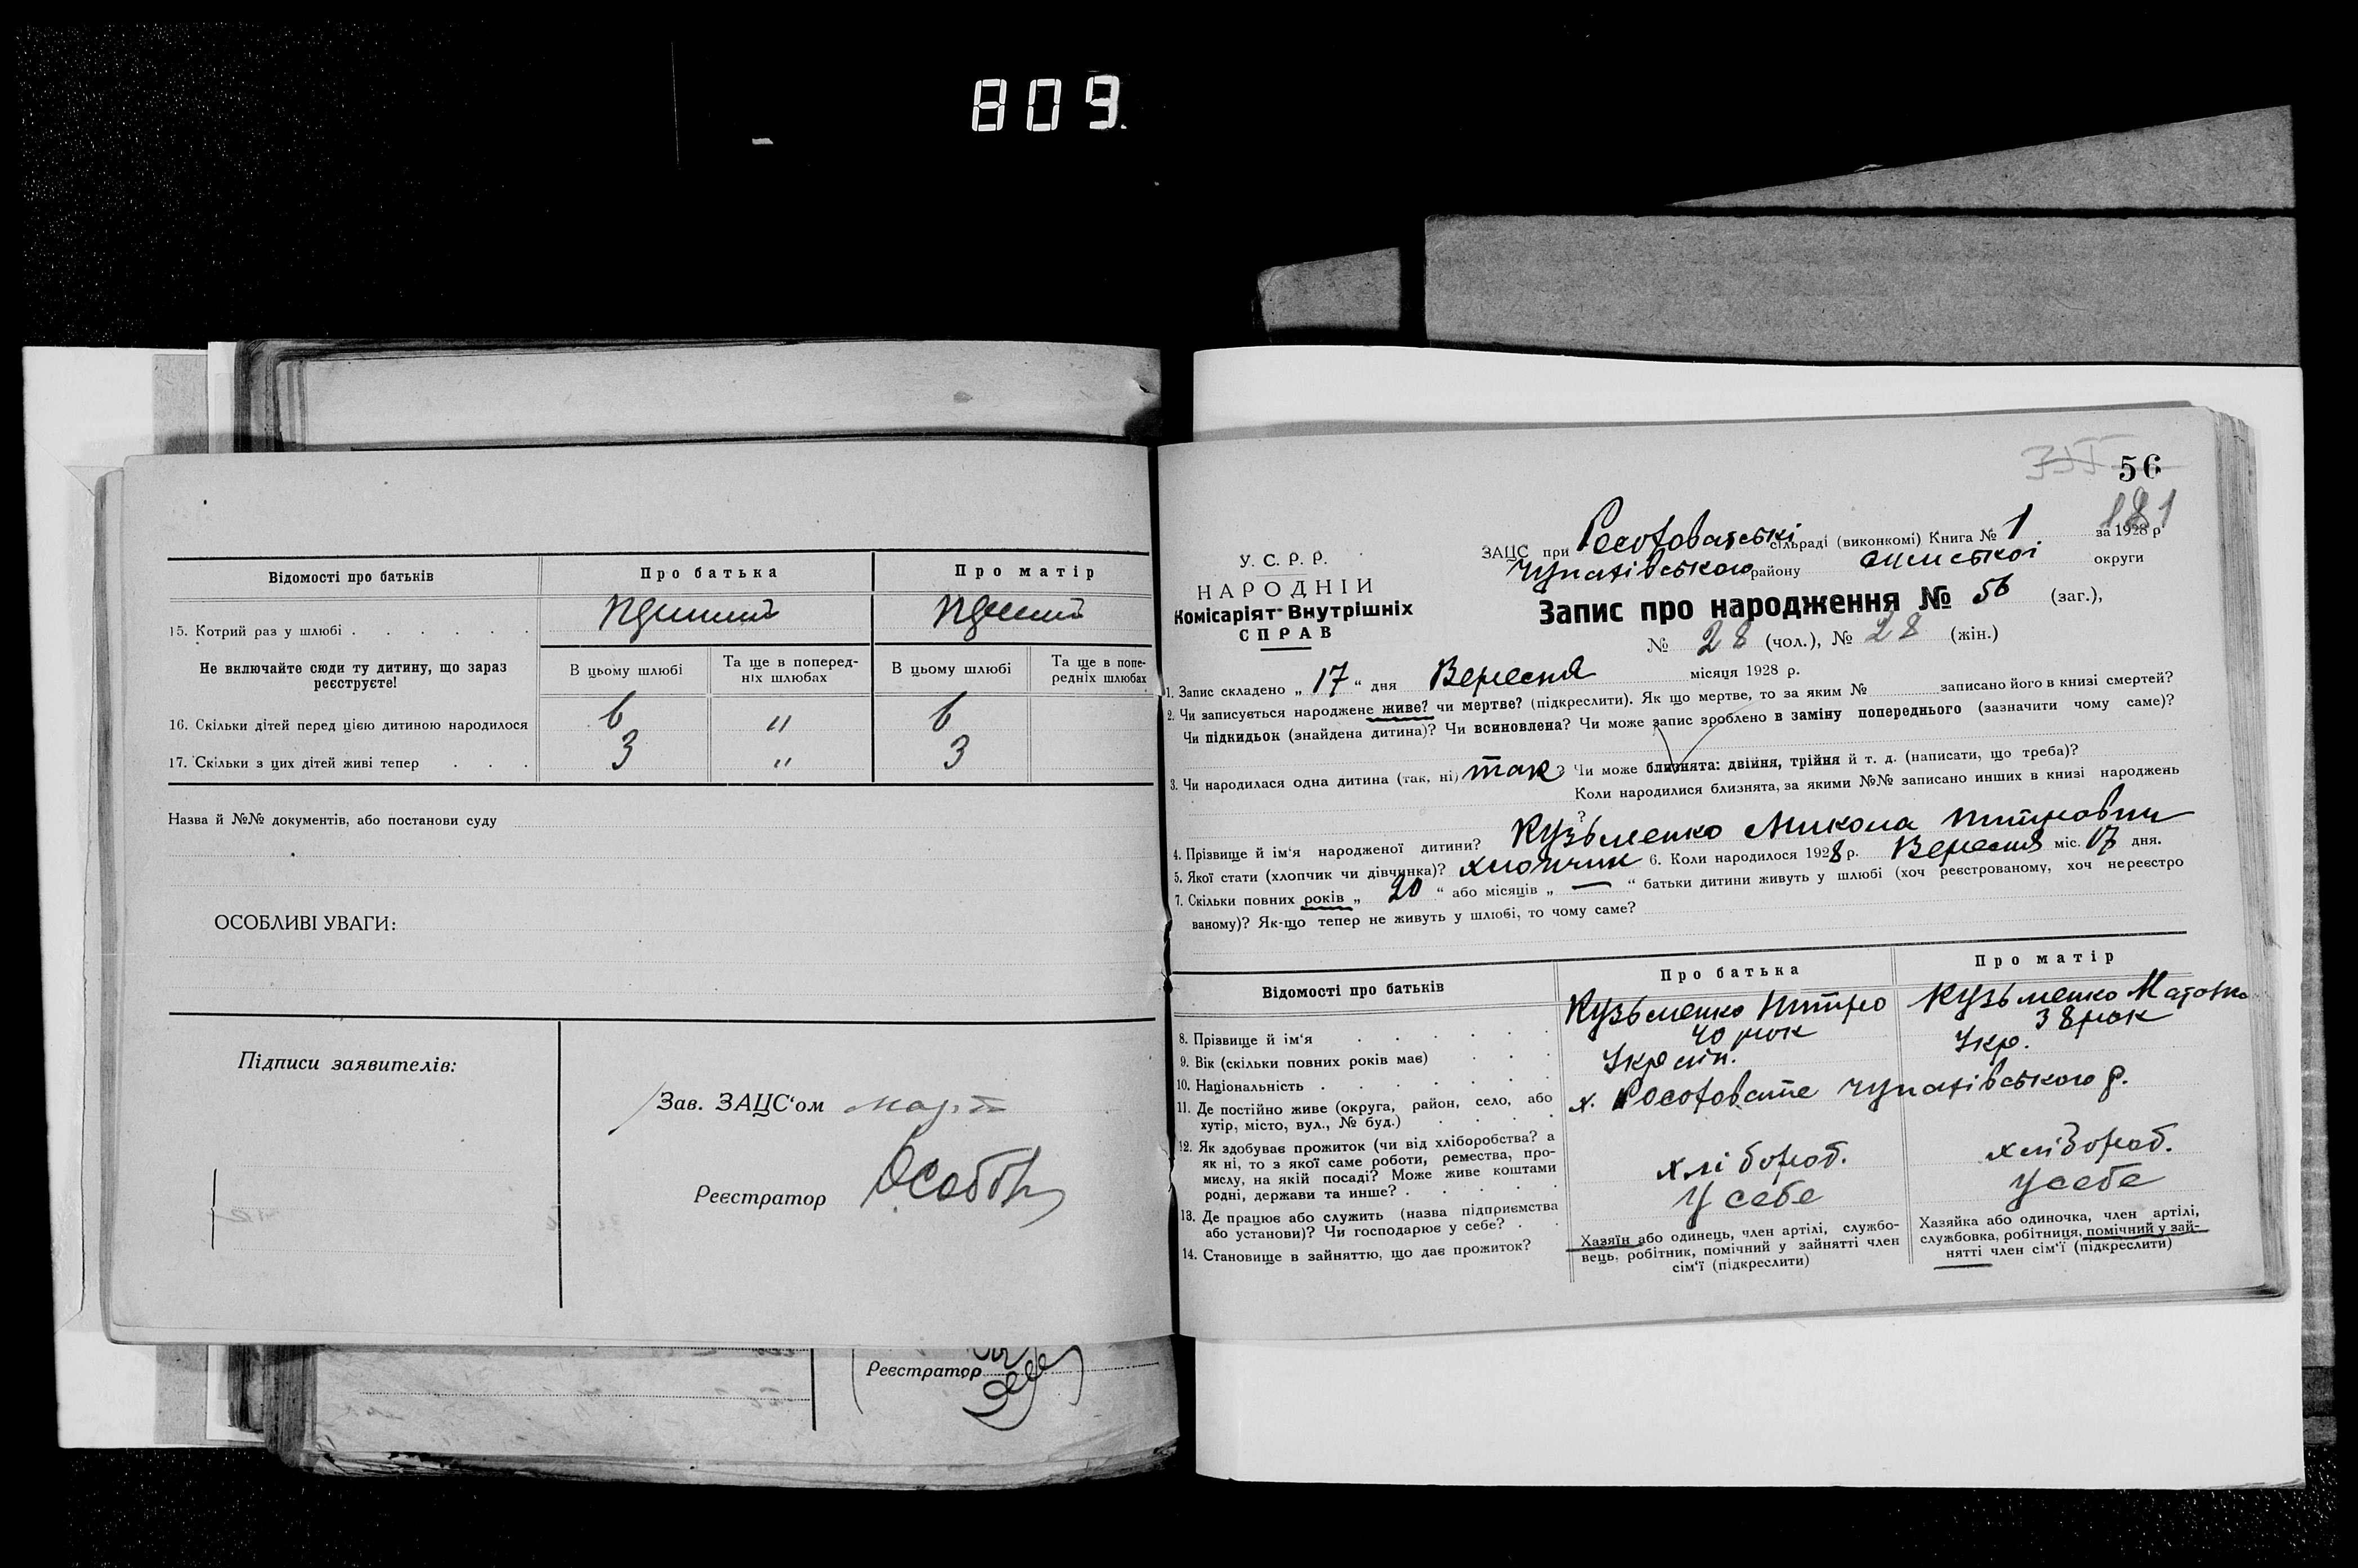 809.
Відомості про батьків
Про батька
Про матір
15. Котрий раз у шлюбі . . . . . .
Не включайте сюди ту дитину, що зараз реєструєте!
В цьому шлюбі
Та ще в поперед-
ніх шлюбах
В цьому шлюбі
Та ще в попе-
редніх шлюбах
16. Скільки дітей перед цією дитиною народилося 6 " 6
17. Скільки з цих дітей живі тепер . . . 3 " 3
Назва й №№ документів, або постанови суду
ОСОБЛИВІ УВАГИ:
Підписи заявителів:
Зав. ЗАЦС'ом
Реєстратор
Реєстратор
56
181
У. С. Р. Р.
НАРОДНІЙ
Комісаріят Внутрішніх
СПРАВ
ЗАЦС при сільраді (виконкомі) Книга № 1 за 1928 р
району округи
Запис про народження № 56 (заг.),
№ 28 (чол.), № 28 (жін.)
1. Запис складено „ 17 “ дня Вересня місяця 1928 р.
2. Чи записується народжене живе? чи мертве? (підкреслити). Як що мертве, то за яким № записано його в книзі смертей?
Чи підкидьок (знайдена дитина)? Чи всиновлена? Чи може запис зроблено в заміну попереднього (зазначити чому саме)?
3. Чи народилася одна дитина (так, ні) так? Чи може близнята: двійня, трійня й т. д. (написати, що треба)?
Коли народилися близнята, за якими №№ записано инших в книзі народжень
?
4. Прізвище й ім'я народженої дитини? Кузьменко Микола
5. Якої стати (хлопчик чи дівчинка)? хлопчик 6. Коли народилося 1928 р. Вересня міс. 17 дня.
7. Скільки повних років „ 20 “ або місяців „ — “ батьки дитини живуть у шлюбі (хоч реєстрованому, хоч нереєстро
ваному)? Як-що тепер не живуть у шлюбі, то чому саме?
Відомості про батьків
Про батька
Про матір
8. Прізвище й ім'я . . . . . Кузьменко Кузьменко
9. Вік (скільки повних років має) . . . 40 рок 38 рок
10. Національність . . . . . . . Укр.
11. Де постійно живе (округа, район, село, або
хутір, місто, вул., № буд.) . . .
12. Як здобуває прожиток (чи від хліборобства? а
як ні, то з якої саме роботи, ремества, про-
мислу, на якій посаді? Може живе коштами
родні, держави та инше? . . . . .
хлібороб. хлібороб.
13. Де працює або служить (назва підприємства
або установи)? Чи господарює у себе? . .
У себе У себе
14. Становище в зайняттю, що дає прожиток?
Хазяїн або одинець, член артілі, службо-
вець, робітник, помічний у зайнятті член
сім'ї (підкреслити)
Хазяйка або одиночка, член артілі,
службовка, робітниця, помічний у зай-
нятті член сім'ї (підкреслити)